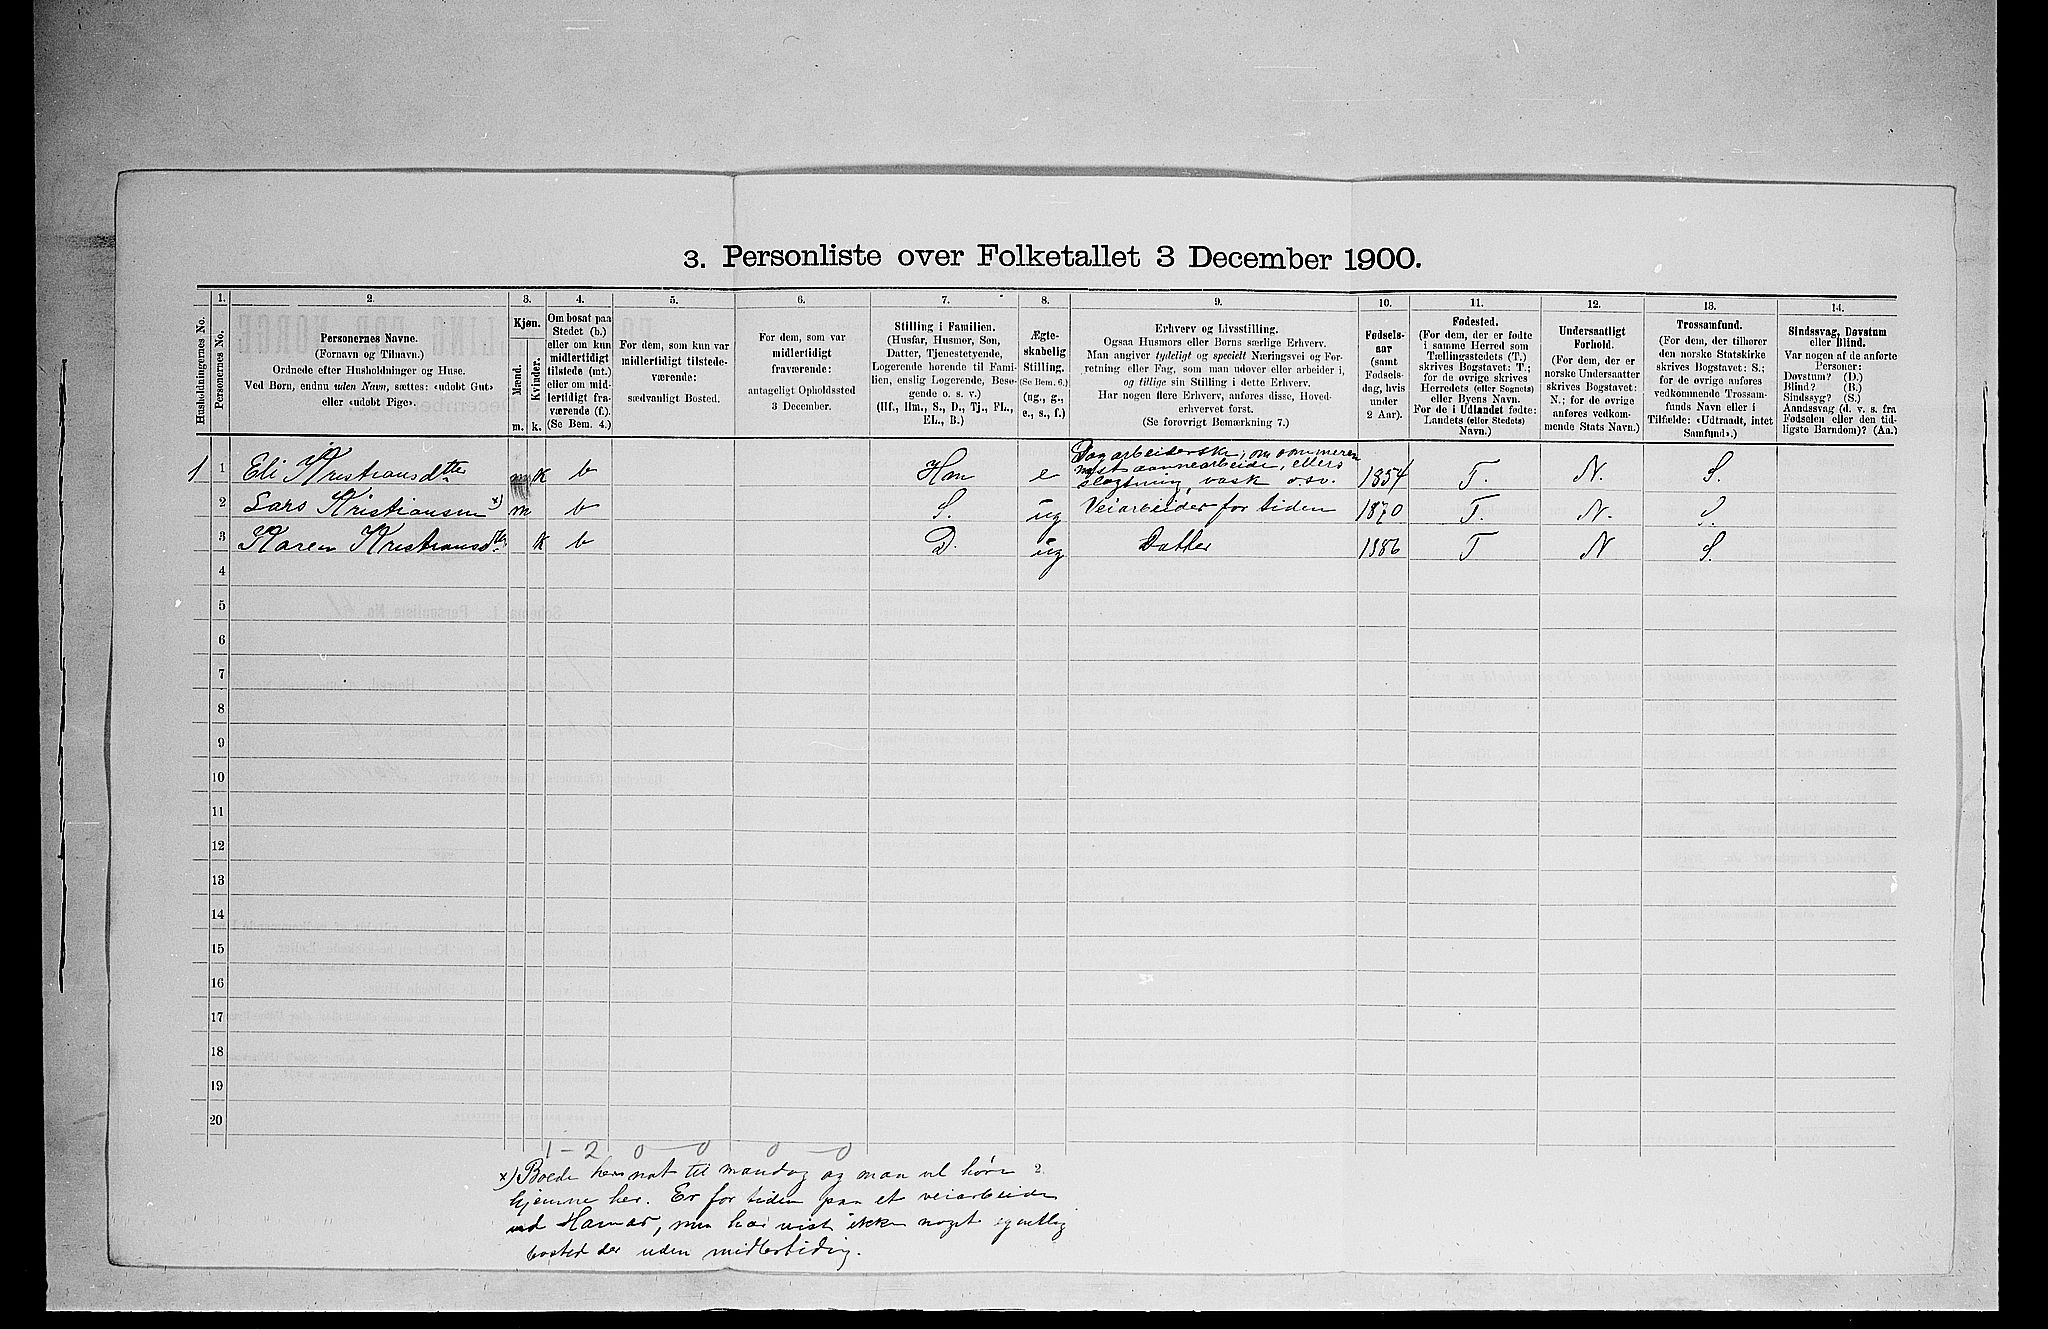 3. Personliste over Folketallet 3 December 1900.
Husholdningernes No.
1.
Personernes No.
2.
Personernes Navne.
(Fornavn og Tilnavn.)
Ordnede efter Husholdninger og Huse.
Ved Børn, endnu uden Navn, sættes: «udøbt Gut»
eller «udøbt Pige».
3.
Kjøn.
Mænd.
Kvinder.
m.
k.
4.
Om bosat paa
Stedet (b.)
eller om kun
midlertidigt
tilstede (mt.)
eller om mid-
lertidigt fra-
værende (f.).
(Se Bem. 4.)
5.
For dem, som kun var
midlertidigt tilstede-
værende:
sædvanligt Bosted.
6.
For dem, som var
midlertidigt
fraværende:
antageligt Opholdssted
3 December.
7.
Stilling i Familien.
(Husfar, Husmor, Søn,
Datter, Tjenestetyende,
Logerende hørende til Fami-
lien, enslig Logerende, Besø-
gende o. s. v.)
(Hf., Hm., S., D., Tj., FL.,
EL., B.)
8.
Ægte-
skabelig
Stilling.
(Se Bem. 6.)
(ug., g.,
e., s., f.)
9.
Erhverv og Livsstilling.
Ogsaa Husmors eller Børns særlige Erhverv.
Man angiver tydeligt og specielt Næringsvei og For-
retning eller Fag, som man udøver eller arbeider i,
og tillige sin Stilling i dette Erhverv.
Har nogen flere Erhverv, anføres disse, Hoved-
erhvervet først.
(Se forøvrigt Bemærkning 7.)
10.
Fødsels-
aar
(samt
Fødsels-
dag, hvis
under
2 Aar).
11.
Fødested.
(For dem, der er fødte
i samme Herred som
Tællingsstedets (T.)
skrives Bogstavet: T.;
for de øvrige skrives
Herredets (eller Sognets)
eller Byens Navn.
For de i Udlandet fødte:
Landets (eller Stedets)
Navn.)
12.
Undersaatligt
Forhold.
(For dem, der er
norske Undersaatter
skrives Bogstavet:
N.; for de øvrige
anføres vedkom-
mende Stats Navn.)
13.
Trossamfund.
(For dem, der tilhører
den norske Statskirke
skrives Bogstavet: S.;
for de øvrige anføres
vedkommende Trossam-
funds Navn eller i
Tilfælde: «Udtraadt, intet
Samfund».)
14.
Sindssvag, Døvstum
eller Blind.
Var nogen af de anførte
Personer:
Døvstum? (D.)
Blind? (B.)
Sindssyg? (S.)
Aandssvag (d. v. s. fra
Fødselen eller den tid-
ligste Barndom)? (Aa.)
1 1 Eli Kristiansdtter k b Hm e Dagarbeiderske, om sommeren
mest aannearbeide, ellers
slagtning, vask osv. 1854 T. N. S.
2 Lars Kristiansen x) m b S. ug Veiarbeider for tiden 1870 T. N. S.
3 Karen Kristiansdtter k b D. ug Datter 1886 T N S.
4
5
6
7
8
9
10
11
12
13
14
15
16
17
18
19
20
1 - 2 0 - 0 0 - 0
x) Boede her nat til mandag og man vel høre
hjemme her. Er for tiden paa et veiarbeide
ved Hamar, men har vist ikke noget egentlig
bosted der uden midlertidig.